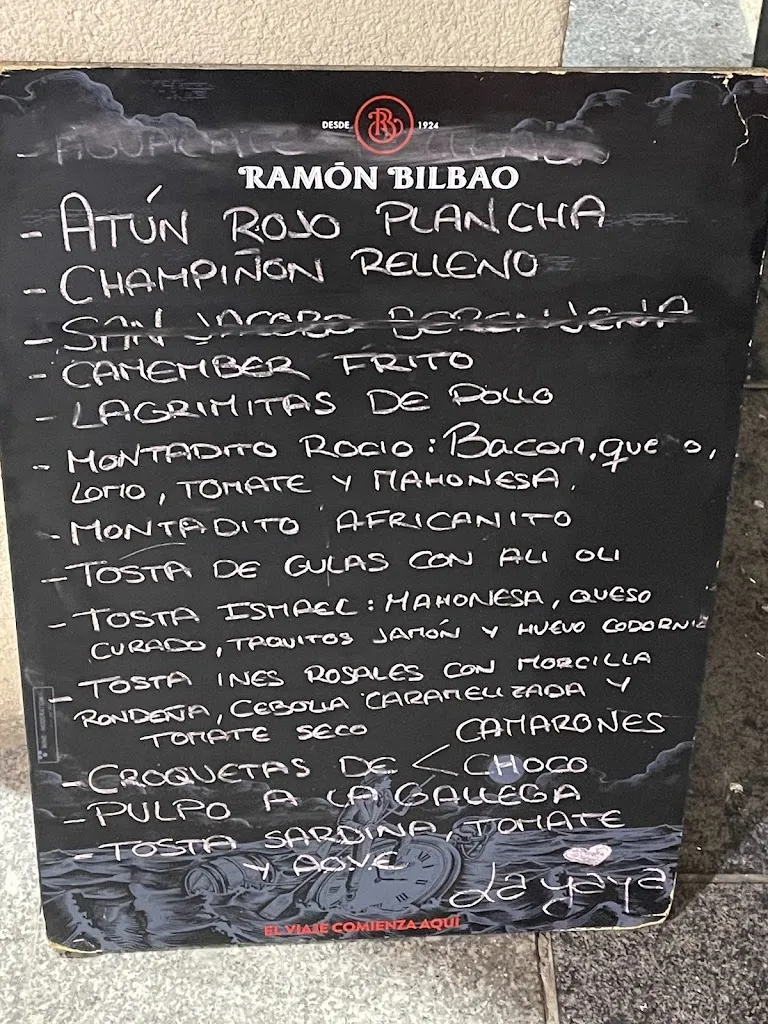 DESDE 1924
RAMÓN BILBAO
- ATÚN ROJO PLANCHA
- CHAMPIÑON RELLENO
- SAN JACOBO BERENJENA
- CAMEMBER FRITO
- LAGRIMITAS DE POLLO
- MONTADITO ROCIO: Bacon, que o,
LOMO, TOMATE Y MAHONESA.
- MONTADITO AFRICANITO
- TOSTA DE GULAS CON ALI OLI
- TOSTA ISMAEL: MAHONESA, QUESO
CURADO, TAQUITOS JAMÓN Y HUEVO CODORNIZ
- TOSTA INES ROSALES CON MORCILLA
RONDEÑA, CEBOLLA CARAMELIZADA Y
TOMATE SECO
CAMARONES
- CROQUETAS DE < CHOCO
- PULPO A LA GALLEGA
- TOSTA SARDINA, TOMATE
Y AOVE
La yaya
EL VIAJE COMIENZA AQUÍ